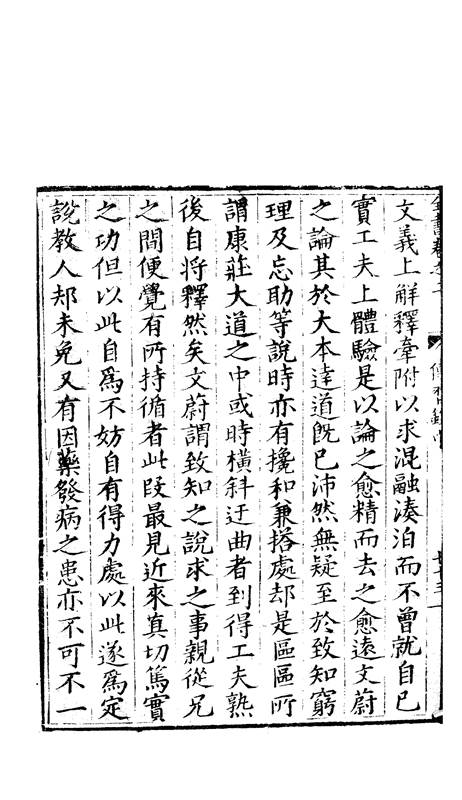 文義上解釋牽附以求混融湊泊而不曾就自己
實工夫上體驗是以論之愈精而去之愈遠文蔚
之論其於大本達道旣已沛然無疑至於致知窮
理及忘助等說時亦有攙和兼搭處却是區區所
謂康莊大道之中或時橫斜迂曲者到得工夫熟
後自將釋然矣文蔚謂致知之說求之事親從兄
之間便覺有所持循者此叚最見近來真切篤實
之功但以此自爲不妨自有得力處以此遂爲定
說教人却未免又有因藥發病之患亦不可不一